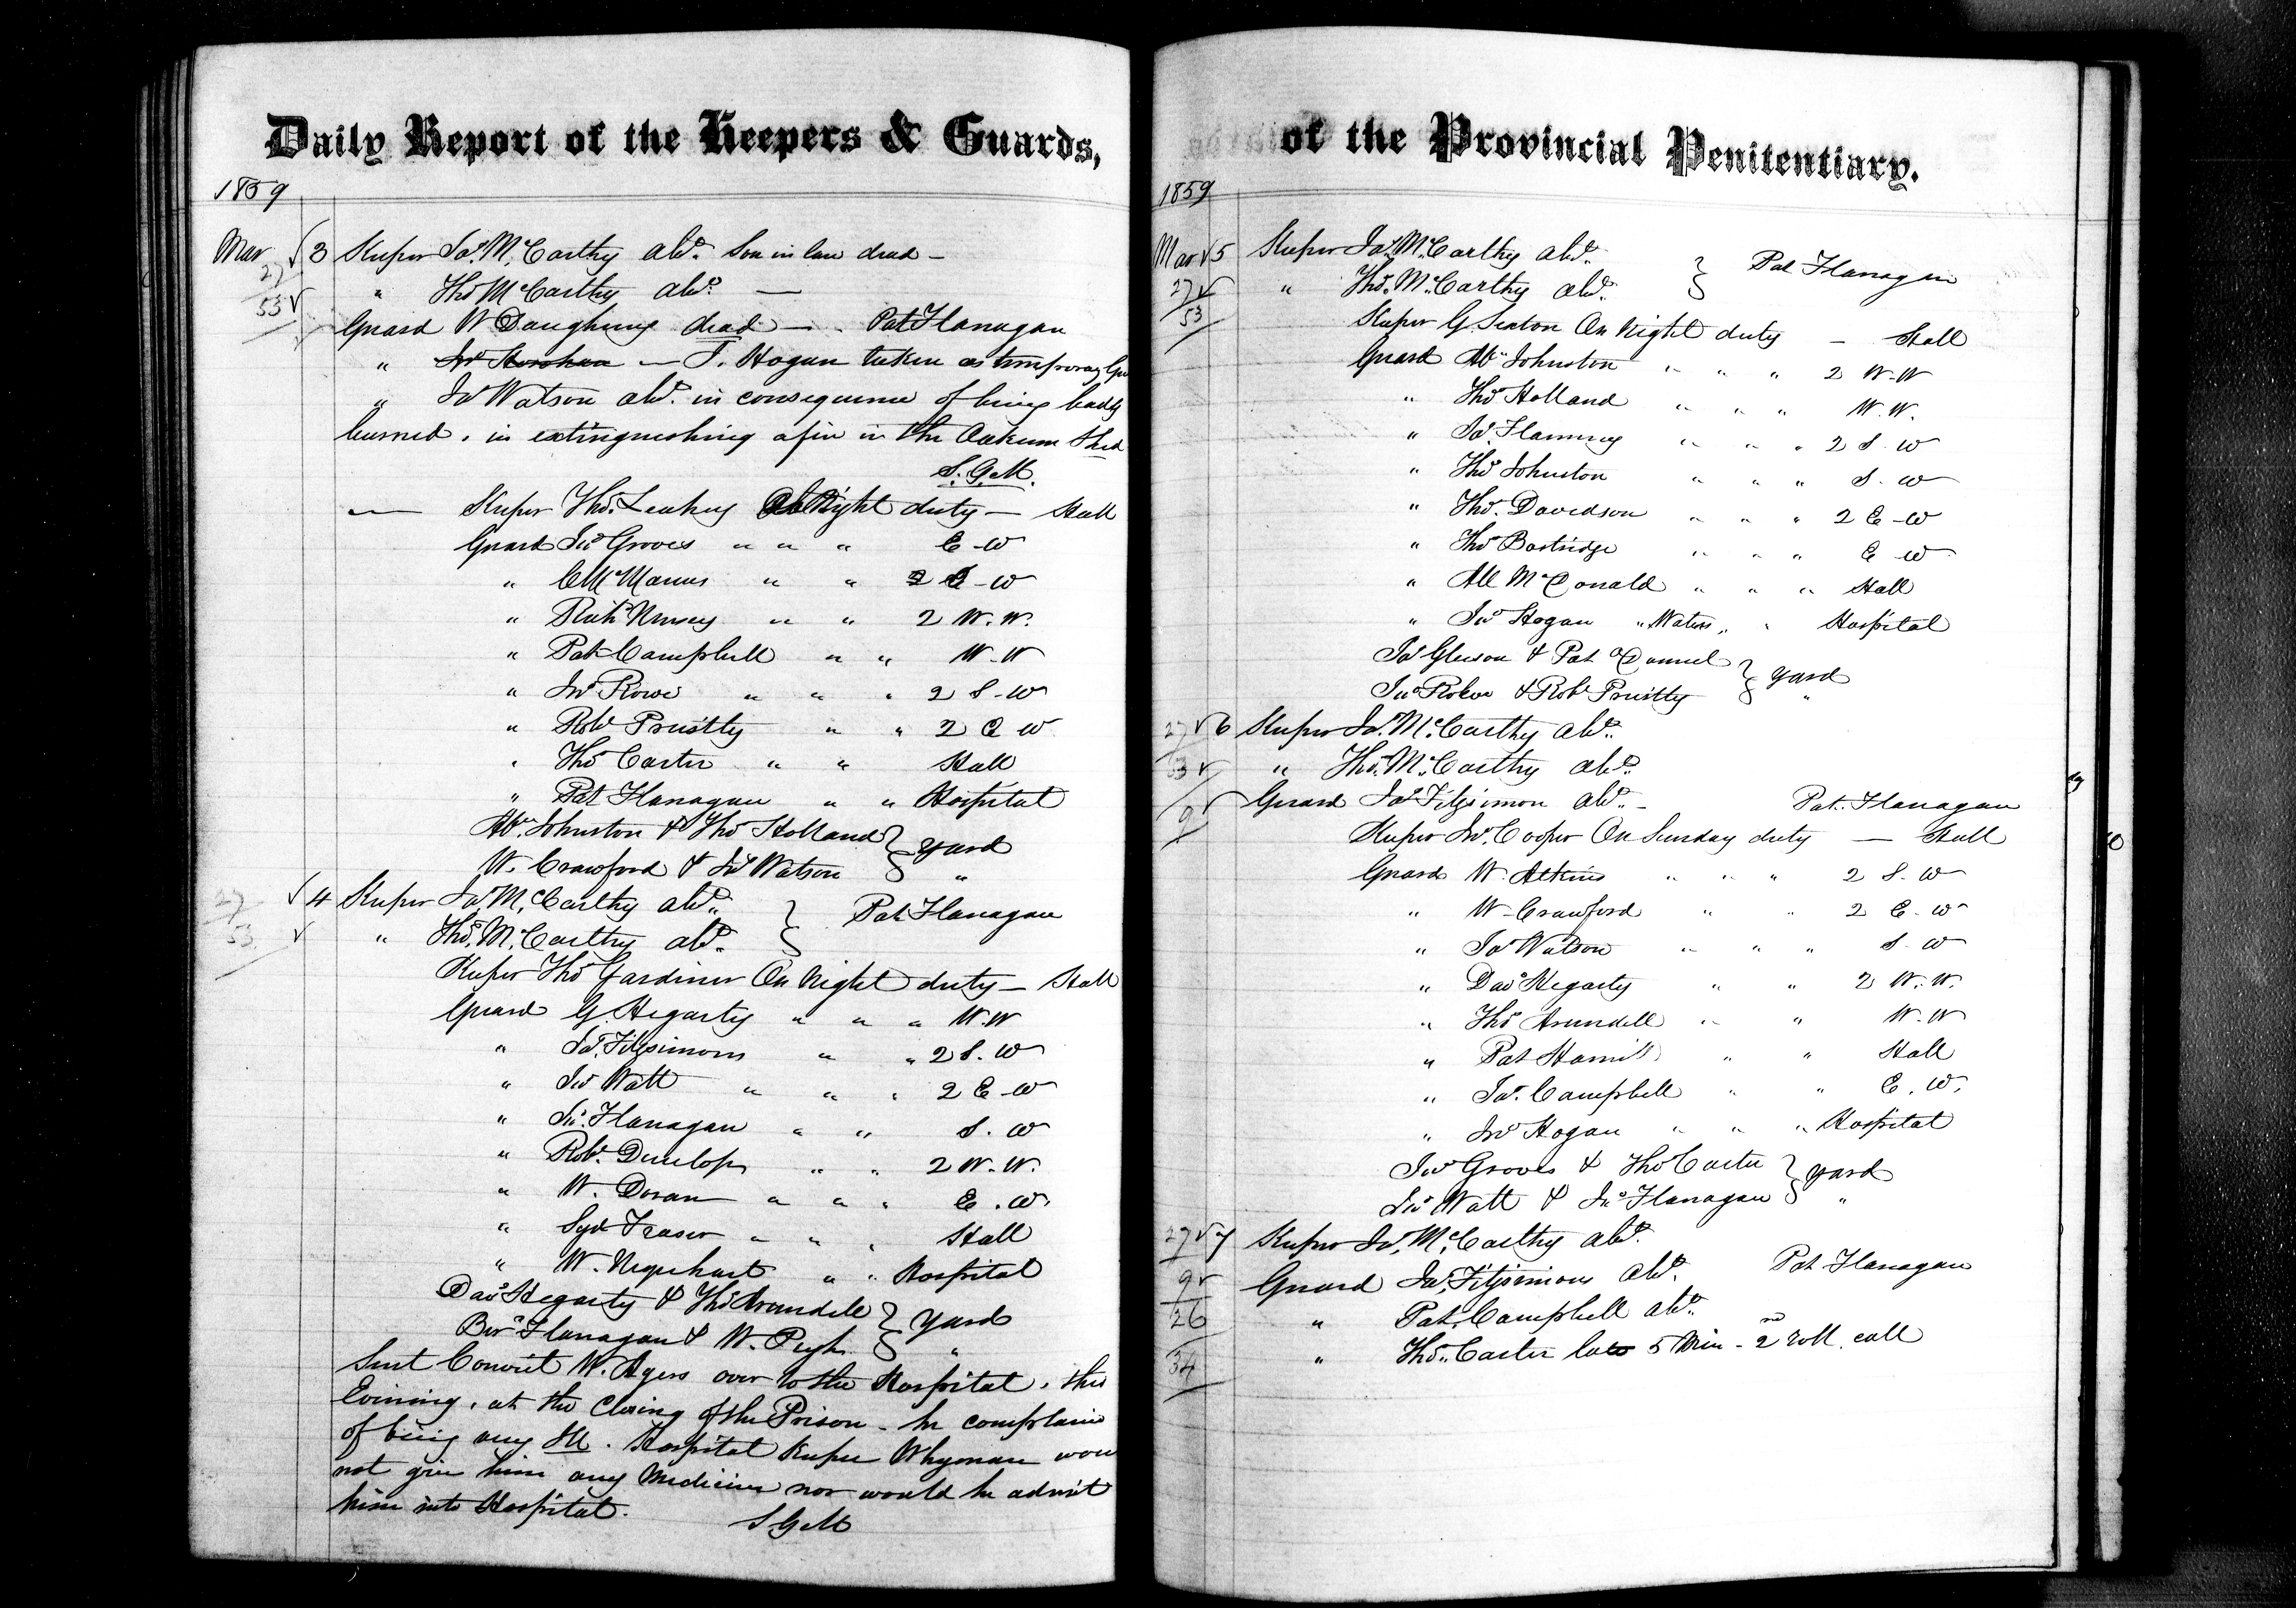 Daily Report of the Keepers & Guards,
1859
Mar 3 Keeper Jas. McCarthy abt. Son in law dead —
27
" Thos McCarthy abt. —
53
Guard W Daughney dead — Pat Flanagan
" — T. Hogan taken as temporary Gu
" Jas Watson abt. in consequence of being badly
burned, in extinguishing a fire in the Oakum Shed
S.G.M.
— Keeper Thos. Leahey On Night duty — Hall
Guard Jno Groves " " " E - W
" C McManus " " 2 S - W
" Richd Nursey " " 2 W. W.
" Pat Campbell " " W - W
" Jno Rowe " " " 2 S - W
" Robt Priestly " " 2 E W
" Thos Carter " " Hall
" Pat Flanagan " " Hospital
Alx. Johnston & Thos Holland } Yard
W. Crawford & Jas Watson } "
27
4 Keeper Jas. McCarthy abt. } Pat Flanagan
53
" Thos. McCarthy abt. }
Keeper Thos Gardiner On Night duty — Hall
Guard G. Hegarty " " " W. W
" Jas. Fitzsimons " " 2 S. W
" Jno Watt " " " 2 E - W
" Jno. Flanagan " " S. W
" Robt. Dunlop " " 2 W. W.
" W. Doran " " " E. W.
" Syd Fraser " " " Hall
" W. Urquhart " " Hospital
Davd Hegarty & Thos Arundell } Yard
Bernd Flanagan & W. Pugh } "
Sent Convict W. Ayers over to the Hospital, this
Evening, at the Closing of the Prison - he complains
of being very Ill. Hospital Keeper Whyman wou
not give him any Medicine nor would he admit
him into Hospital. S.G.M
of the Provincial Penitentiary.
1859
Mar 5 Keeper Jas. McCarthy abt. } Pat Flanagan
27
" Thos. McCarthy abt. }
53
Keeper G. Sexton On Night duty — Hall
Guard Alx Johnston " " " 2 W - W
" Thos Holland " " " W. W.
" Jas. Flanning " " " 2 S. W
" Thos Johnston " " " S. W
" Thos. Davidson " " " 2 E - W
" Thos Bostridge " " " E W
" All McDonald " " " Hall
" Jno Hogan " Watson " " Hospital
Jas Gleeson & Pat ODonnel } Yard
Jno Robes & Robt Priestly } "
27 6 Keeper Jas. McCarthy abt.
53 " Thos. McCarthy abt.
9 Guard Jas Fitzsimon abt. — Pat. Flanagan
Keeper Jno. Cooper On Sunday duty — Hall
Guard W. Atkins " " " 2 S. W
" W. Crawford " " 2 E. W
" Jas Watson " " " S. W
" Davd Hegarty " " 2 W. W.
" Thos Arundell " " W. W
" Pat Hamill " " Hall
" Jas. Campbell " " E. W.
" Jno Hogan " " " Hospital
Jno Groves & Thos Carter } Yard
Jno Watt & Jno Flanagan } "
27 7 Keeper Jas. McCarthy abt.
9 Guard Jas. Fitzsimons abt. Pat Flanagan
26 " Pat. Campbell abt.
34 " Thos. Carter late 5 Min - 2nd roll call